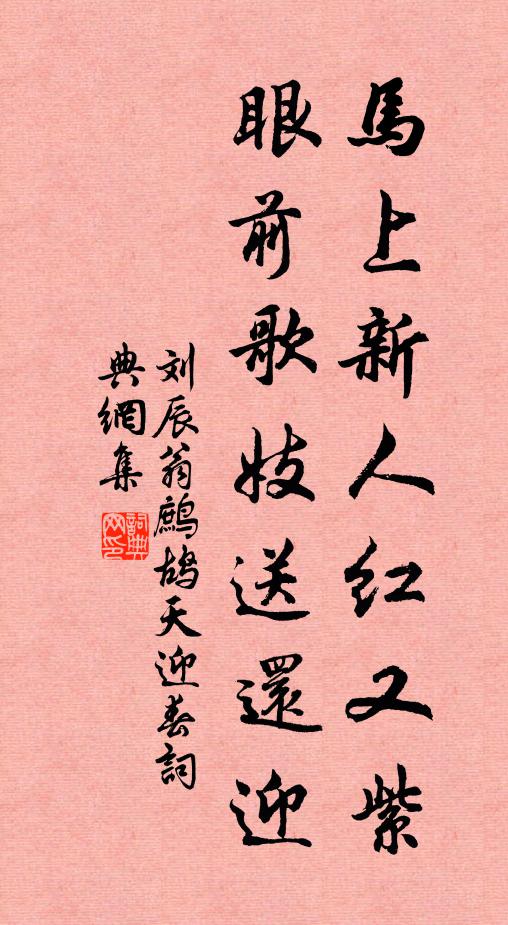 馬上新人红又紫
眼前歌妓送還迎
刘辰翁鷓鴣天迎春詞
典網集
詞典
网印